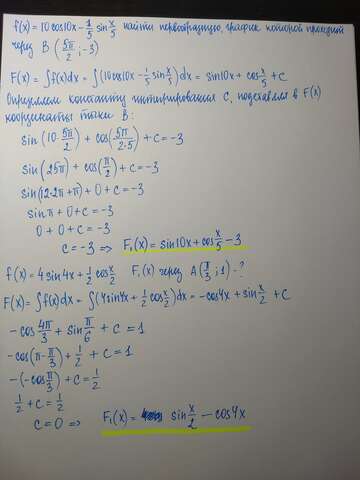 f(x) = 10cos10x - 1/5 sin x/5 найти первообразную, график которой проходит
через B (5π/2; -3)
F(x) = ∫f(x)dx = ∫(10cos10x - 1/5 sin x/5)dx = sin10x + cos x/5 + C
Определяем константу интегрирования C, подставляя в F(x)
координаты точки B:
sin(10·5π/2) + cos(5π/2·5) + C = -3
sin(25π) + cos(π/2) + C = -3
sin(12·2π+π) + 0 + C = -3
sinπ + 0 + C = -3
0 + 0 + C = -3
C = -3 => F₁(x) = sin10x + cos x/5 - 3
f(x) = 4sin4x + 1/2 cos x/2 F₁(x) через A(π/3; 1) - ?
F(x) = ∫f(x)dx = ∫(4sin4x + 1/2 cos x/2)dx = -cos4x + sin x/2 + C
-cos 4π/3 + sin π/6 + C = 1
-cos(π - π/3) + 1/2 + C = 1
-(-cos π/3) + C = 1/2
1/2 + C = 1/2
C = 0 => F₁(x) = sin x/2 - cos4x